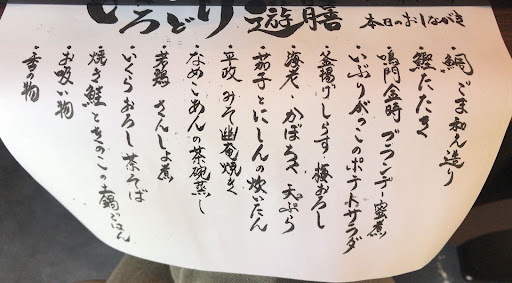 いろどり遊膳 本日のおしながき
・鯛ごま和え造り
・鰹たたき
・鳴門金時 ブランデー蜜煮
・いぶりがっこのポテトサラダ
・釜揚げしらす 梅おろし
・海老・かぼちゃ 天ぷら
・茄子とにしんの炊いたん
・平政 みそ幽庵焼き
・なめこあんの茶碗蒸し
・若鶏 さんしょ煮
・いくらおろし茶そば
・焼き鮭ときのこの土鍋ごはん
・お吸い物
・香の物